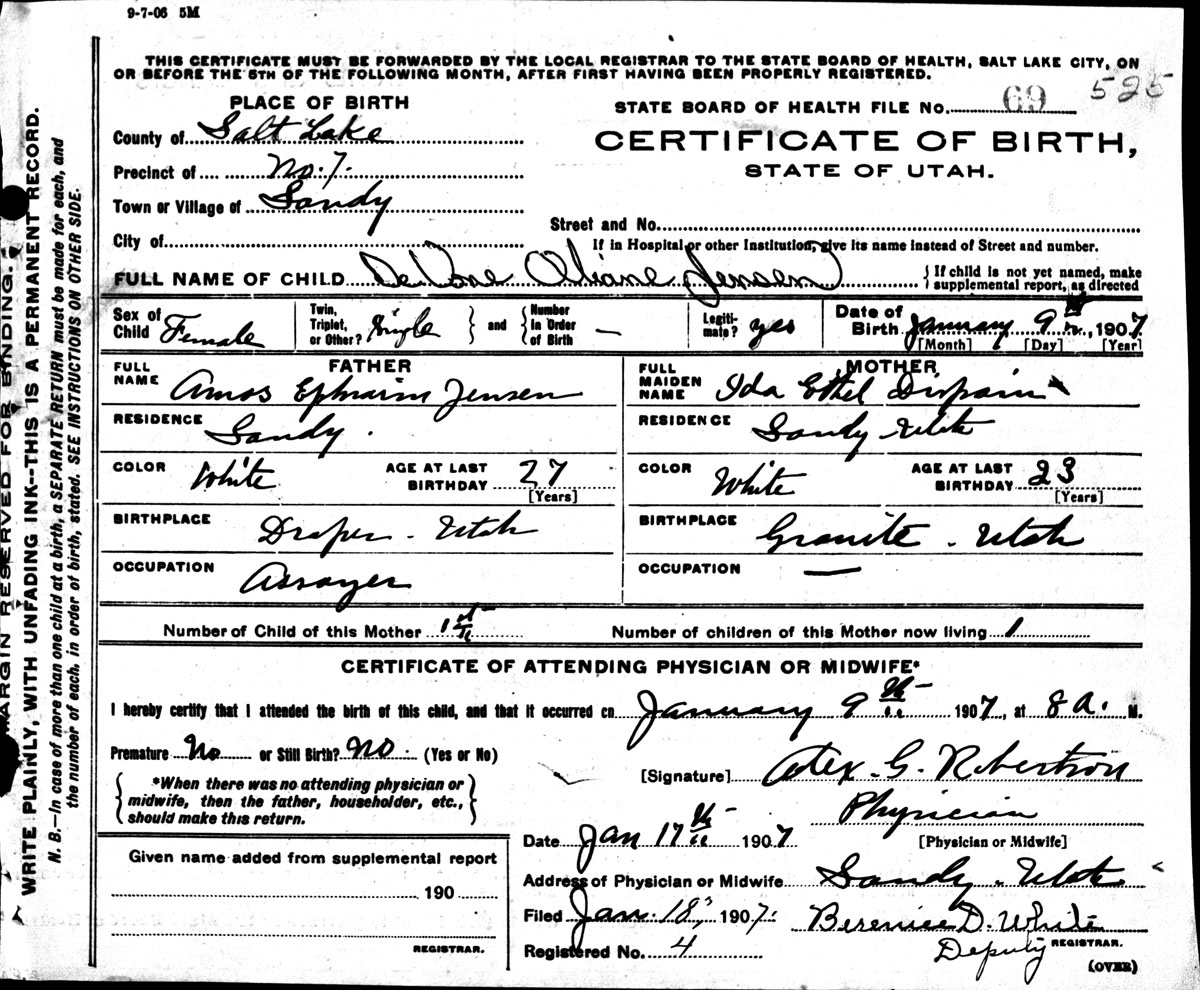 9-7-06 5M
THIS CERTIFICATE MUST BE FORWARDED BY THE LOCAL REGISTRAR TO THE STATE BOARD OF HEALTH, SALT LAKE CITY, ON
OR BEFORE THE 5TH OF THE FOLLOWING MONTH, AFTER FIRST HAVING BEEN PROPERLY REGISTERED.
PLACE OF BIRTH
STATE BOARD OF HEALTH FILE No. 69 525
County of Salt Lake
CERTIFICATE OF BIRTH,
Precinct of No. 7.
STATE OF UTAH.
Town or Village of Sandy
Street and No.
City of
If in Hospital or other Institution, give its name instead of Street and number.
FULL NAME OF CHILD Jensen
{ If child is not yet named, make
supplemental report, as directed
Sex of Child Female
Twin, Triplet, or Other? Single } and { Number in Order of Birth —
Legiti-mate? yes
Date of Birth January 9th, 1907
[Month] [Day] [Year]
FATHER
FULL NAME Amos Ephraim Jensen
RESIDENCE Sandy.
COLOR White
AGE AT LAST BIRTHDAY 27
[Years]
BIRTHPLACE Draper - Utah
OCCUPATION Assayer
MOTHER
FULL MAIDEN NAME Ida Ethel
RESIDENCE Sandy Utah
COLOR White
AGE AT LAST BIRTHDAY 23
[Years]
BIRTHPLACE Granite - Utah
OCCUPATION —
Number of Child of this Mother 1st
Number of children of this Mother now living 1
CERTIFICATE OF ATTENDING PHYSICIAN OR MIDWIFE*
I hereby certify that I attended the birth of this child, and that it occurred on January 9th 1907, at 8 a. M.
Premature No or Still Birth? No. (Yes or No)
[Signature] Alex. G. Robertson
{ *When there was no attending physician or
midwife, then the father, householder, etc.,
should make this return. }
Physician
[Physician or Midwife]
Date Jan 17th 1907
Address of Physician or Midwife Sandy - Utah
Filed Jan. 18, 1907. Berenice D. White
Deputy REGISTRAR.
Registered No. 4
(OVER)
Given name added from supplemental report
190
REGISTRAR.
MARGIN RESERVED FOR BINDING.
WRITE PLAINLY, WITH UNFADING INK--THIS IS A PERMANENT RECORD.
N. B.—In case of more than one child at a birth, a SEPARATE RETURN must be made for each, and
the number of each, in order of birth, stated. SEE INSTRUCTIONS ON OTHER SIDE.